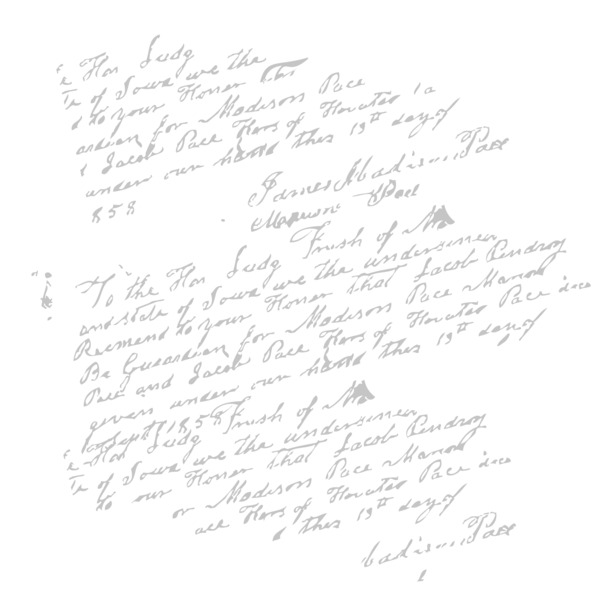 e Hon Judg
Te of Iowa we the
d to your Honer this
ardian for Madison Pace
d Jacob Pace Hors of Horatio la
under our hand this 13th day of
858
James Madison Pace
Marion Pace
Trush of Ma
To the Hon Judg
and state of Iowa we the undersinen
Recmend to your Honer that Jacob Pendroy
Be Gueardian for Madison Pace Marion
Pace and Jacob Pace Hors of Horatio Pace
given under our hand this 13th day of
Sept 1858
Trush of Ma
e Hon Judg
Te of Iowa we the undersinen
to our Honer that Jacob Pendroy
or Madison Pace Marion
ace Hors of Horatio Pace
this 13th day of
adison Pace